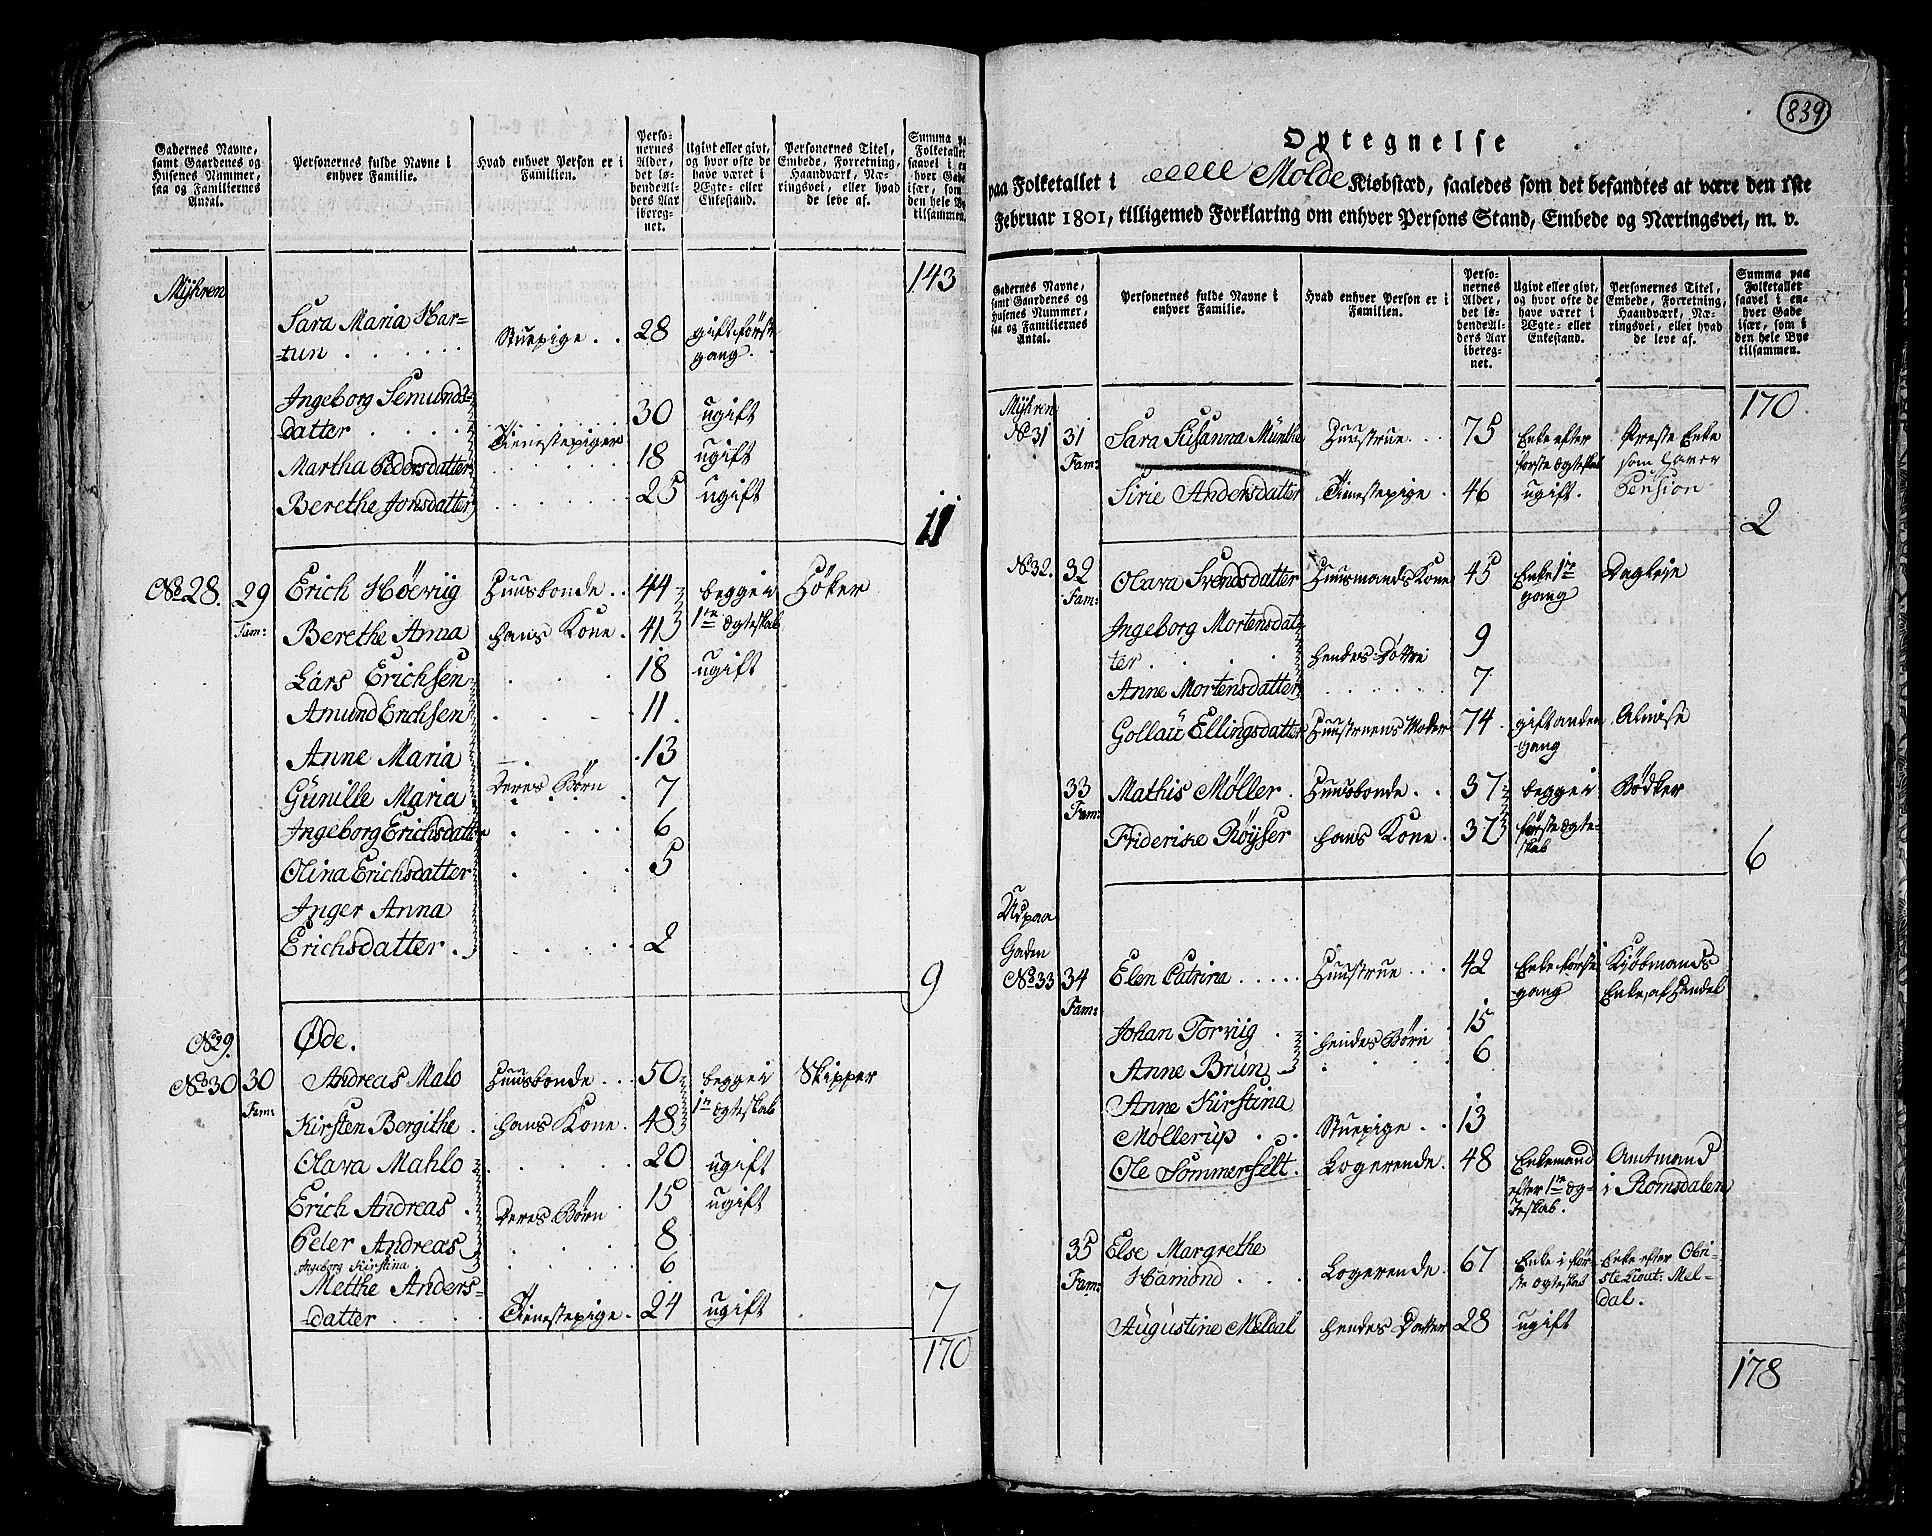 Gadernes Navne,
samt Gaardenes og
Husenes Nummer,
saa og Familiernes
Antal.
Personernes fulde Navne i
enhver Familie.
Hvad enhver Person er i
Familien.
Perso-
nernes
Alder,
det lø-
bende Al-
ders Aar
ibereg-
net.
Ugivt eller givt,
og hvor ofte de
have været i
Ægte- eller
Enkestand.
Personernes Titel,
Embede, Forretning,
Haandværk, Næ-
ringsvei, eller hvad
de leve af.
Summa paa
Folketallet
saavel i en-
hver Gade
især, som i
den hele By
tilsammen.
143
Myhren
Sara Maria Har-
tun . . . . . . Stuepige . . 28 gift først
gang.
Ingeborg Semunds-
datter . . . . 30 ugift
Tienestepiger
Martha Pedersdatter 18 ugift
Berethe Jonsdatter 25 ugift
11
No 28. 29 Fam: Erich Höeviig Huusbonde . . 44 begge i Höker
Berethe Anna hans Kone . 43 1te Egteskab
Lars Erichsen 18 ugift
Amund Erichsen 11.
Anne Maria 13
Gunille Maria Deres Börn 7
Ingeborg Erichsdatter 6
Olina Erichsdatter 5
Inger Anna
Erichsdatter . 2
9
No 29. Øde.
No 30 30 Fam: Andreas Malo Huusbonde . . . 50 begge i Skipper
Kirsten Bergithe . hans Kone . 48 1te Egteskab
Olava Mahlo 20 ugift
Erich Andreas . Deres Börn 15 ugift
Peter Andreas 8
Ingeborg Kirstina . 6
Methe Anders-
datter . . . . Tienestepige . 24 ugift
7
170
839
Optegnelse
paa Folketallet i Molde Kiøbstæd, saaledes som det befandtes at være den 1ste
Februar 1801, tilligemed Forklaring om enhver Persons Stand, Embede og Næringsvei, m. v.
Gadernes Navne,
samt Gaardenes og
Husenes Nummer,
saa og Familiernes
Antal.
Personernes fulde Navne i
enhver Familie.
Hvad enhver Person er i
Familien.
Perso-
nernes
Alder,
det lø-
bende Al-
ders Aar
ibereg-
net.
Ugivt eller givt,
og hvor ofte de
have været i
Ægte- eller
Enkestand.
Personernes Titel,
Embede, Forretning,
Haandværk, Næ-
ringsvei, eller hvad
de leve af.
Summa paa
Folketallet
saavel i en-
hver Gade
især, som i
den hele Bye
tilsammen.
170.
Myhren
No 31 31 Fam: Sara Susanna Münthe Huustrue . . . 75 Enke efter Preste Enke
første Egteskab som haver
Sirie Andersdatter Tienestepige . 46 ugift . Pension
2
No 32. 32 Fam: Olava Svendsdatter Huusmands Kone 45 Enke 1te Dagleje
gang
Ingeborg Mortensdat-
ter . . . . hendes Döttre 9
Anne Mortensdatter 7
Gollau Ellingsdatter Huustruens Moder 74 . gift anden Almise
gang
33 Fam: Mathis Møller . Huusbonde . . 37 begge i Bödker
Friderike Röyser hans Kone . 37 første Egte-
skab
6
Udpaa
Gaden
No 33 34 Fam: Elen Catrina . . . . . Huustrue . . . 42 Enke første Kjöbmands
gang Enke, af Handel
Johan Torviig . hendes Börn 15
Anne Brün 6
Anne Kirstina
Møllerup . . Stuepige . . 13
Ole Sommerfelt . Logerende . 48 Enkemand Amtmand
efter 1te Eg- i Romsdalen
teskab.
35 Fam: Else Margrethe
Hamond . . . Logerende . 67 Enke i før- Enke efter Obri-
ste Egteskab ste Lieut: Mel-
dal.
Augustine Meldal hendes Datter 28 ugift
178